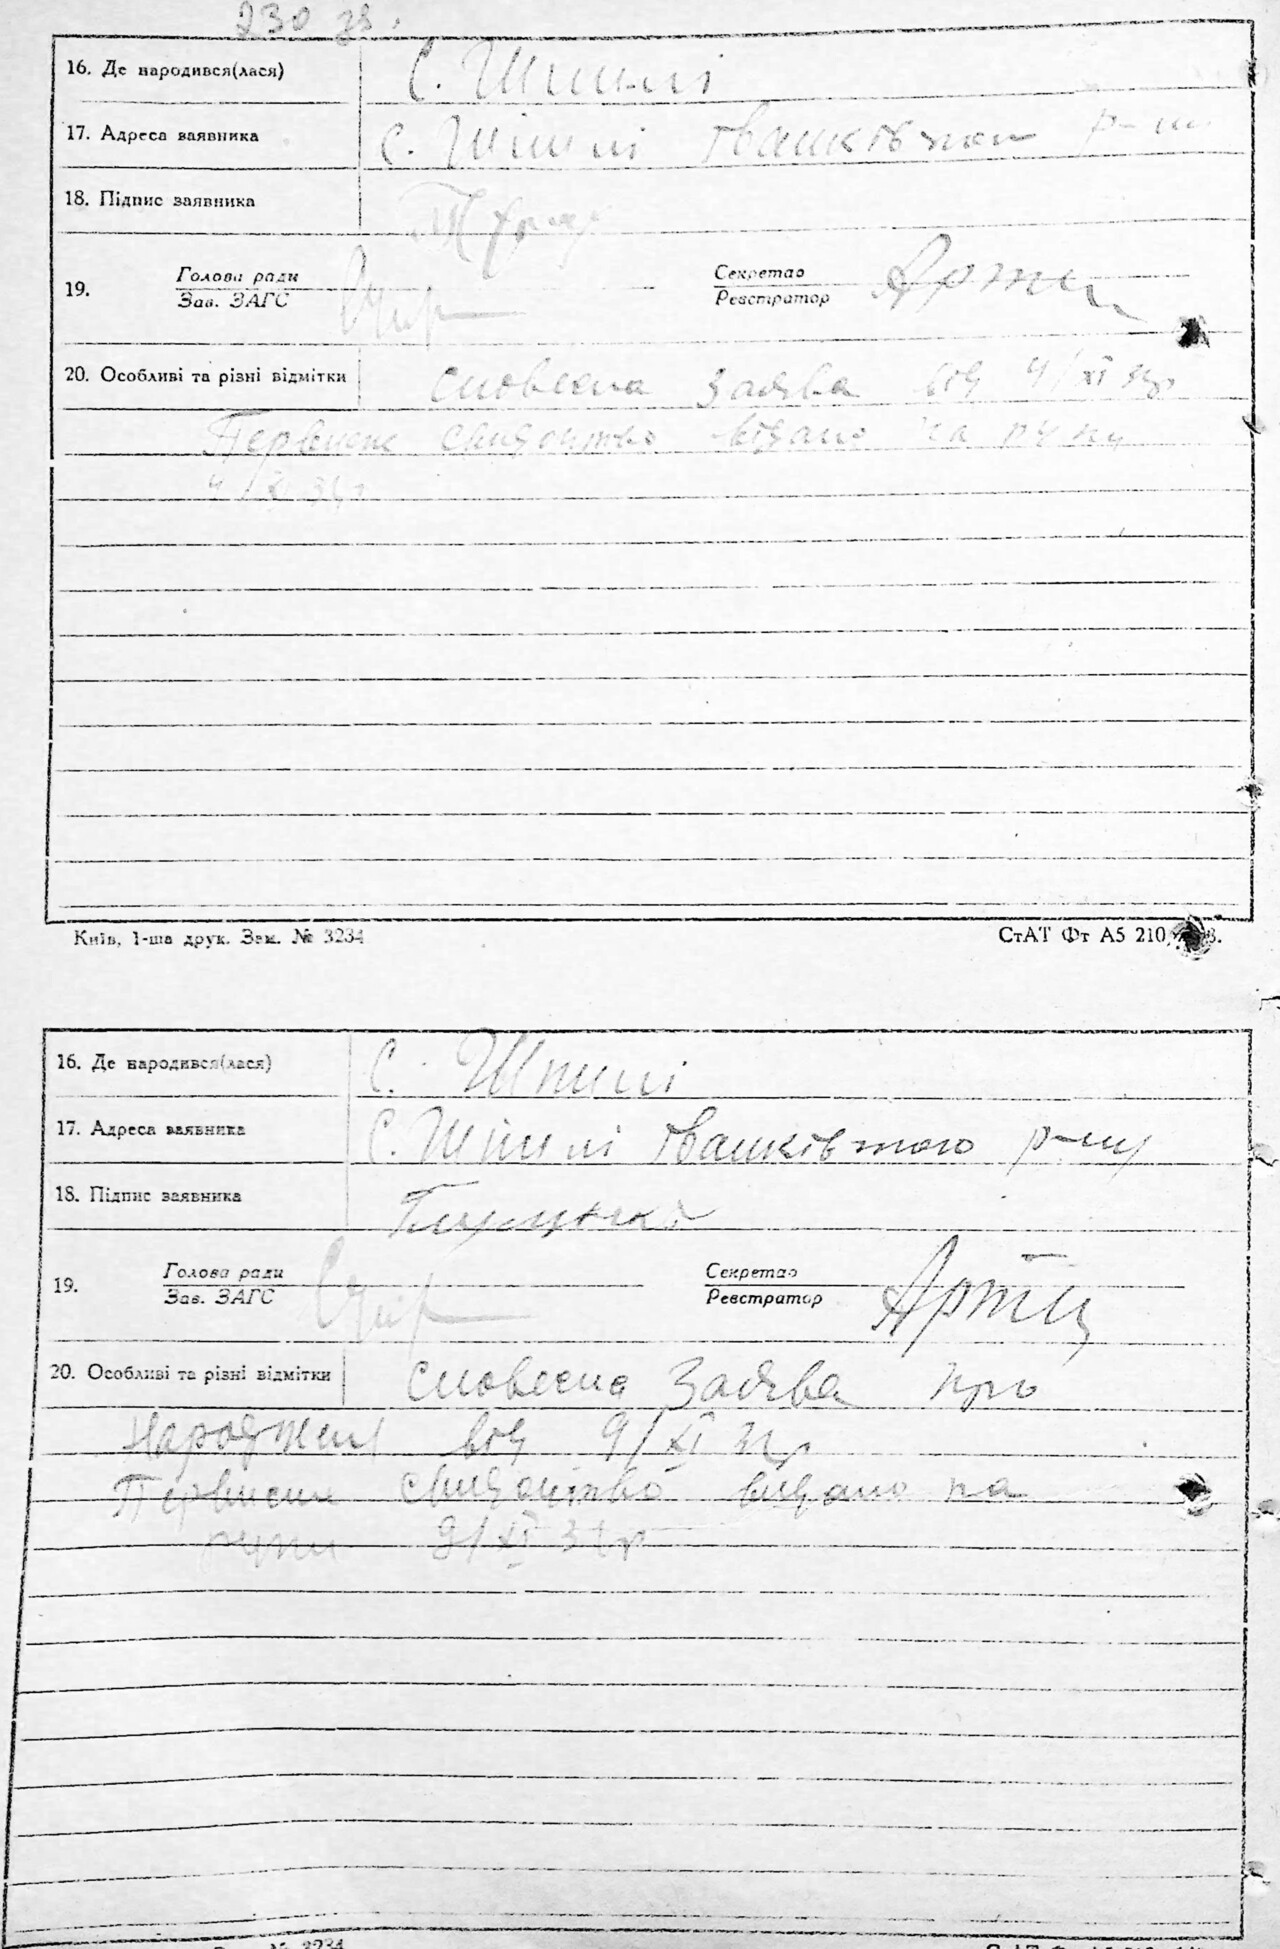 230 зв.
16. Де народився(лася) С. Шпилі
17. Адреса заявника С. Шпилі Іванківська р-ну
18. Підпис заявника
19. Голова ради Секретар
Зав. ЗАГС Реєстратор
20. Особливі та різні відмітки словесна заява від 4/XI 34р
Первісне свидоцтво видано на руки
4/XI 34р
Київ, 1-ша друк. Зам. № 3234 СтАТ Фт А5 210
16. Де народився(лася) С. Шпилі
17. Адреса заявника С. Шпилі Іванківського р-ну
18. Підпис заявника
19. Голова ради Секретар
Зав. ЗАГС Реєстратор
20. Особливі та різні відмітки словесна заява про
народжен від 9/XI 34р
Первісне свидоцтво видано на
руки 9/XI 34р
№ 3234